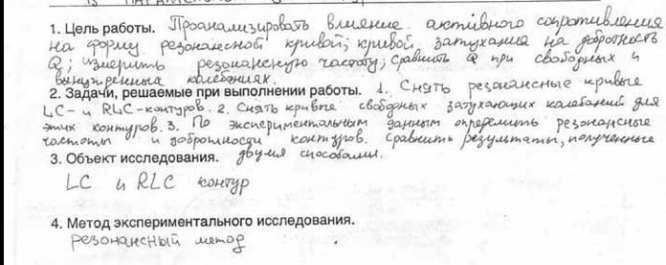 1. Цель работы. Проанализировать влияние активного сопротивления
на форму резонансной кривой; кривой затухания на добротность
Q; измерить резонансную частоту; сравнить Q при свободных и
вынужденных колебаниях.
2. Задачи, решаемые при выполнении работы. 1. Снять резонансные кривые
LC- и RLC-контуров. 2. Снять кривые свободных затухающих колебаний для
этих контуров. 3. По экспериментальным данным определить резонансные
частоты и добротности контуров. Сравнить результаты, полученные
3. Объект исследования. двумя способами.
LC и RLC контур
4. Метод экспериментального исследования.
резонансный метод